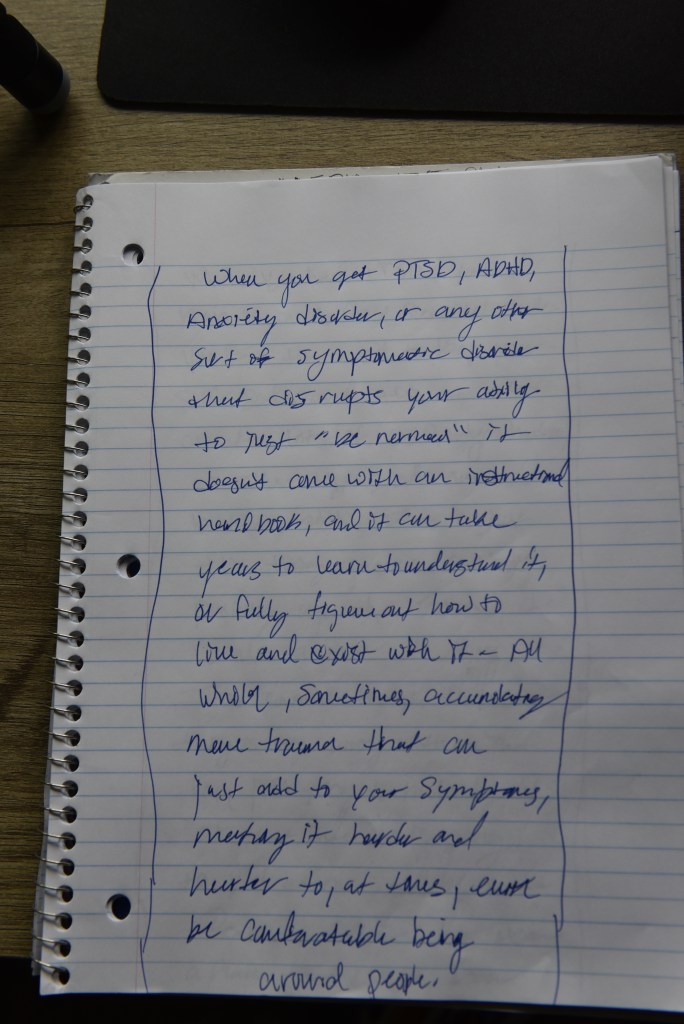 When you get PTSD, ADHD,
Anxiety disorder, or any other
Sort of symptomatic disorder
that disrupts your ability
to just "be normal" it
doesn't come with an instructional
handbook, and it can take
years to learn to understand it,
or fully figure out how to
live and exist with it - All
while, sometimes, accumulating
more trauma that can
just add to your symptoms,
making it harder and
harder to, at times, even
be comfortable being
around people.